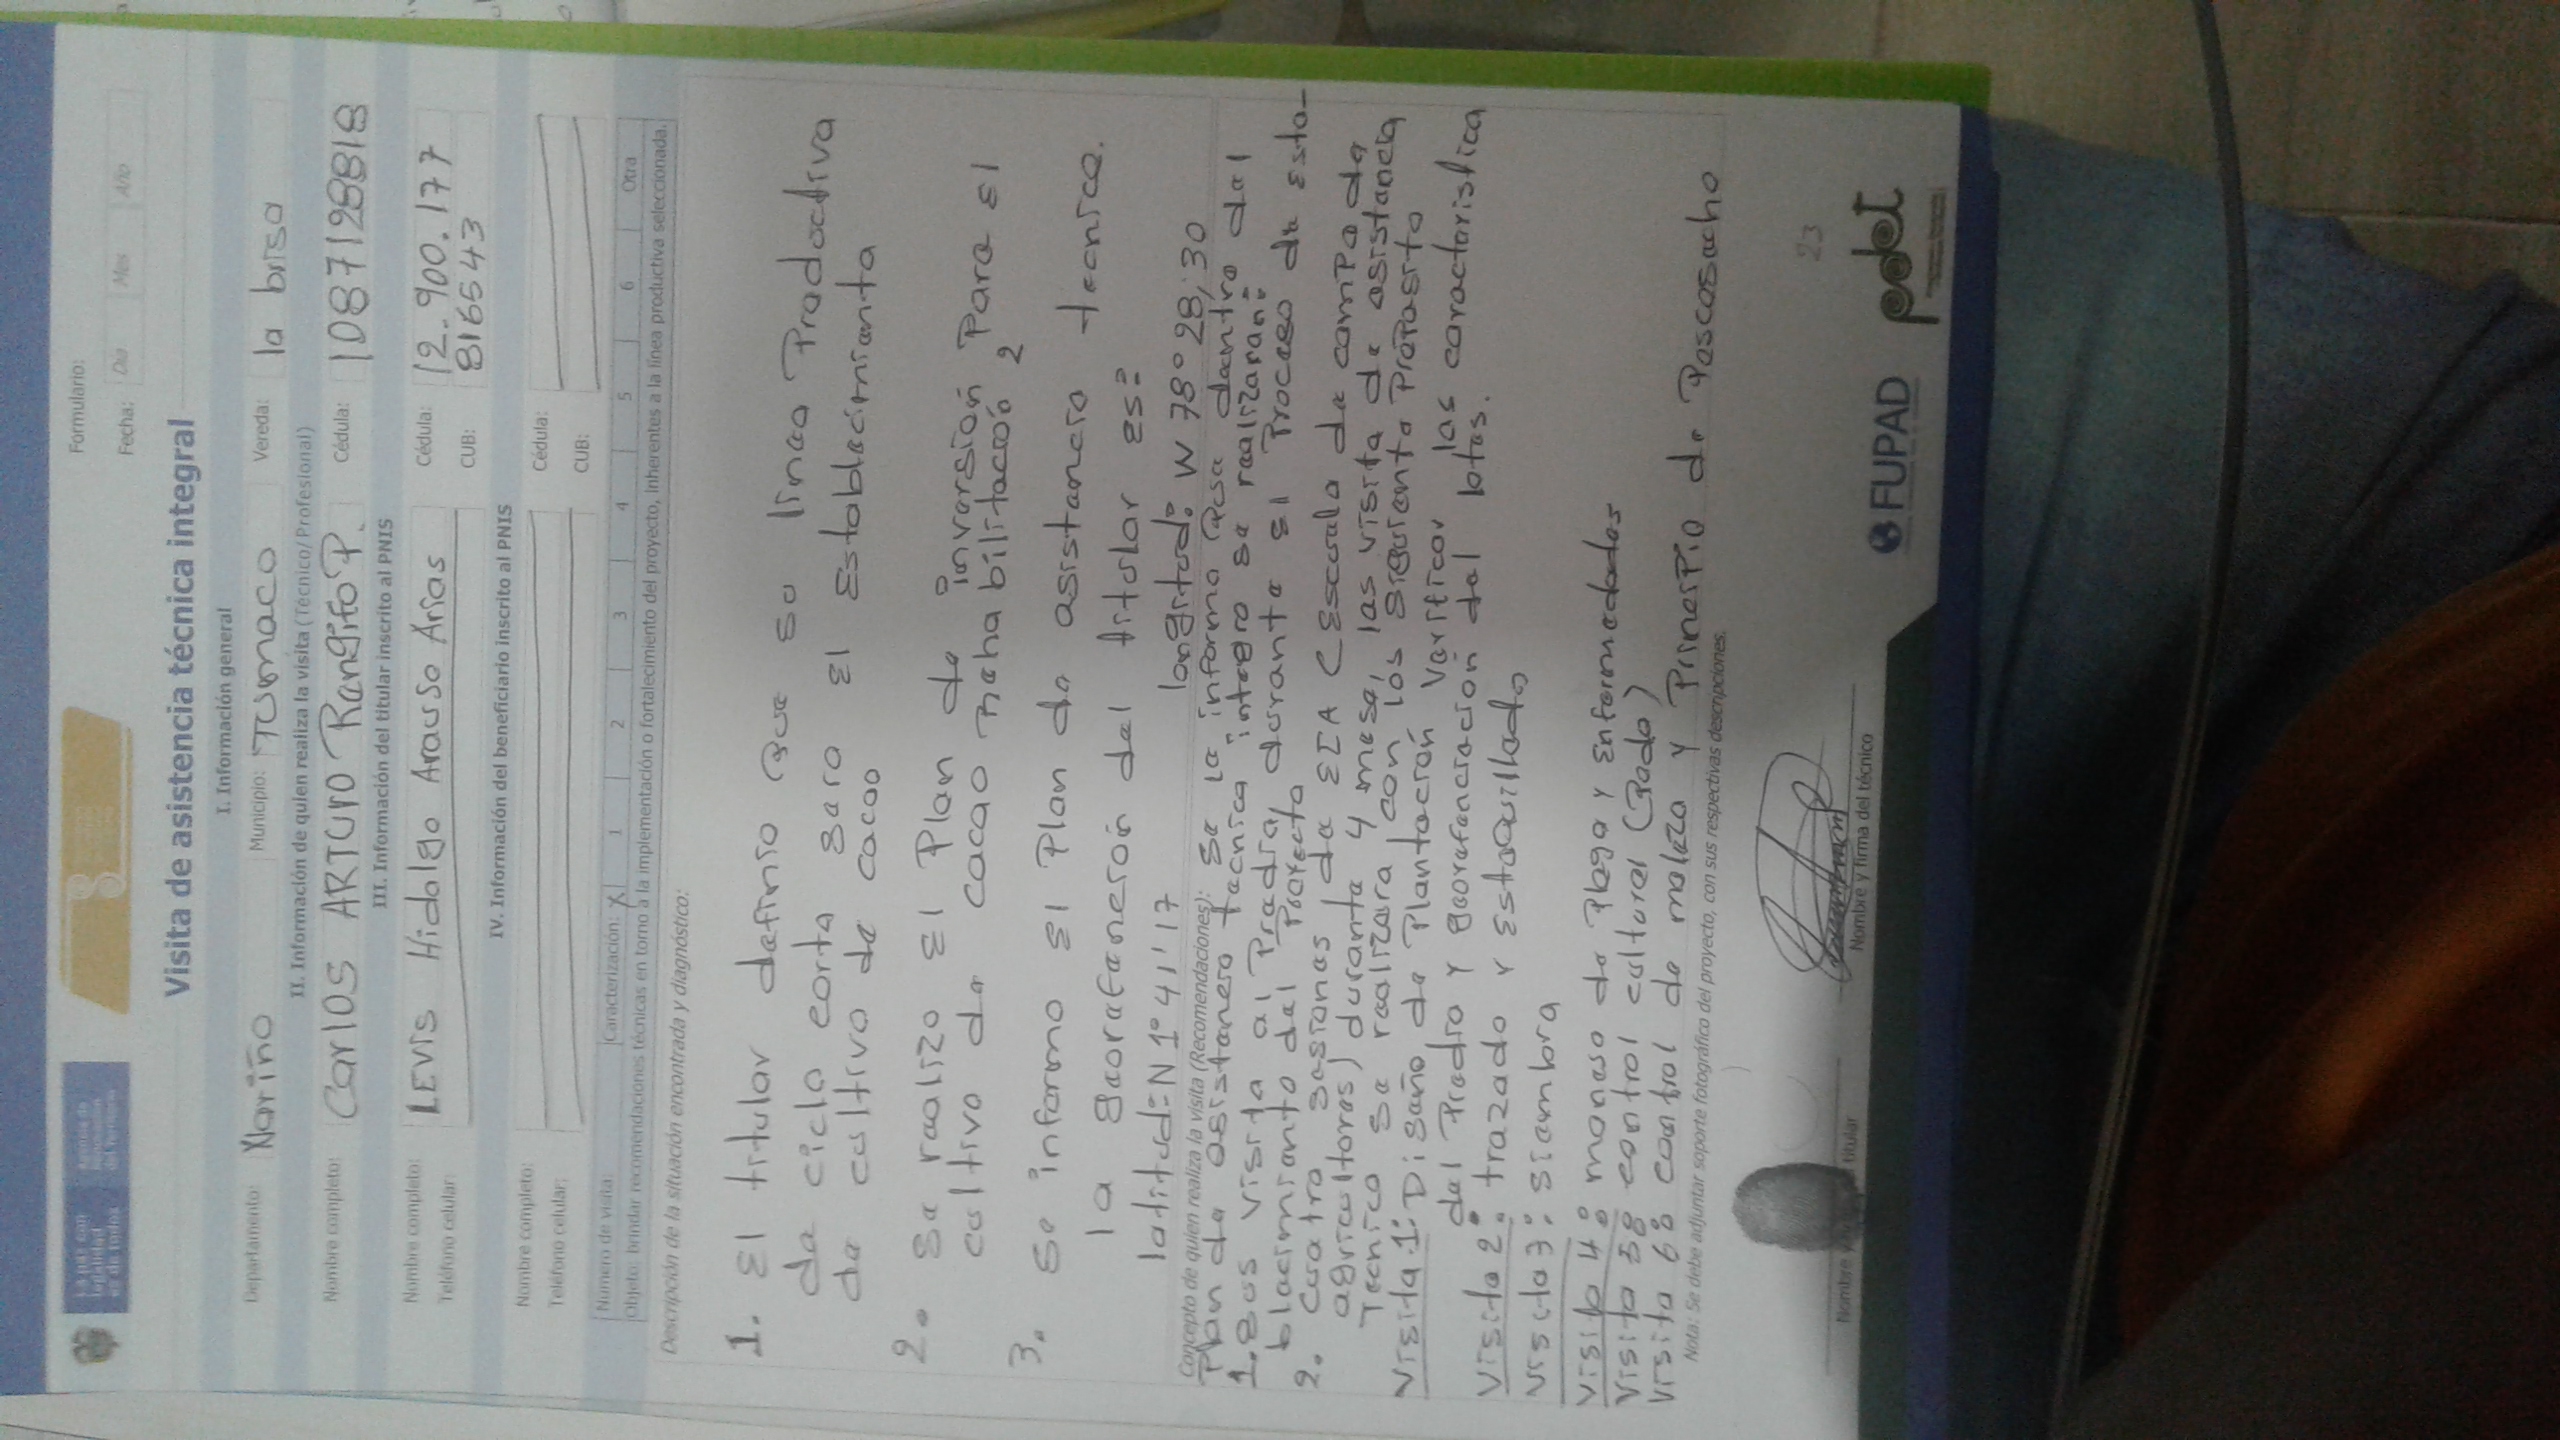 Formulario:
Fecha: Día Mes Año
Visita de asistencia técnica integral
I. Información general
Departamento: Nariño Municipio: Tumaco Vereda: la brisa
II. Información de quien realiza la visita (Técnico/ Profesional)
Nombre completo: Carlos ARTURO Rengifo P. Cédula: 1087128818
III. Información del titular inscrito al PNIS
Nombre completo: LEVIS Hidalgo Arauso Arias Cédula: 12.900.177
Teléfono celular: CUB: 816543
IV. Información del beneficiario inscrito al PNIS
Nombre completo: Cédula:
Teléfono celular: CUB:
Número de visita: Caracterización: X 1 2 3 4 5 6 Otra
Objeto: brindar recomendaciones técnicas en torno a la implementación o fortalecimiento del proyecto, inherentes a la línea productiva seleccionada.
Descripción de la situación encontrada y diagnóstico:
1. El titular definio que su linea Productiva
de ciclo corto sara El Establecimiento
de cultivo de cacao
2. Se realizo El Plan de inversión Para El
cultivo de cacao rehabilitació 2
3. Se informo El Plan de asistencia tecnica.
la georefanerción del titular es:
latitud: N 1° 41' 17 longitud: W 78° 28, 30
Concepto de quien realiza la visita (Recomendaciones): Se le informo que dentro del
Plan de asistencia tecnica integro se realizaran:
1. Seis visita al Predio durante el Proceso de esta-
blecimiento del Proyecto
2. Cuatro sesiones de ECA (Escuela de campo de
agricultores) durante 4 mese, las visita de asistencia
Tecnica se realizara con los siguiente Proposito
Visita 1: Diseño de Plantación Verificar las caracteristica
del Predio y georefenciación del lotes.
Visita 2: trazado y estaquillado
Visita 3: siembra
Visita 4: manejo de Plaga y Enfermedades
Visita 5: control cultural (Poda)
Visita 6: control de maleza y Principio de Poscosecho
Nota: Se debe adjuntar soporte fotográfico del proyecto, con sus respectivas descripciones.
23
titular
Nombre y firma del técnico
FUPAD
pdet